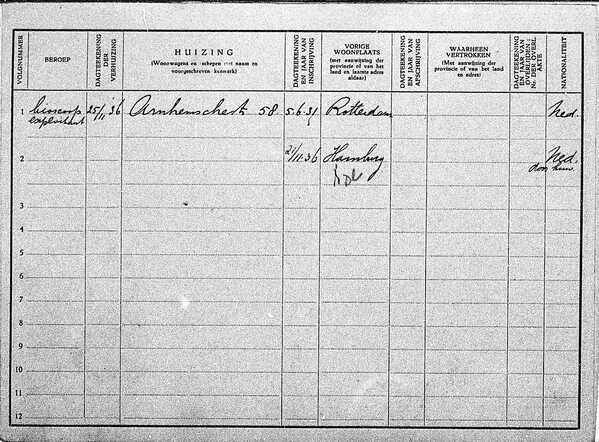 VOLGNUMMER
BEROEP
DAGTEEKENING
DER
VERHUIZING
HUIZING
(Woonwagens en schepen met naam en
voorgeschreven kenmerk)
DAGTEEKENING
EN JAAR VAN
INSCHRIJVING
VORIGE
WOONPLAATS
(met aanwijzing der
provincie of van het
land en laatste adres
aldaar)
DAGTEEKENING
EN JAAR VAN
AFSCHRIJVING
WAARHEEN
VERTROKKEN
(Met aanwijzing der
provincie of van het land
en adres)
DAGTEEKENING
EN JAAR VAN
OVERLIJDEN;
No. DER OVERL.
AKTE
NATIONALITEIT
1 bioscoop 25/11 '36 Arnhemschestr 58 5.6.31 Rotterdam Ned.
exploitant
2 21/11.36 Hamburg Ned.
door huw.
3
4
5
6
7
8
9
10
11
12